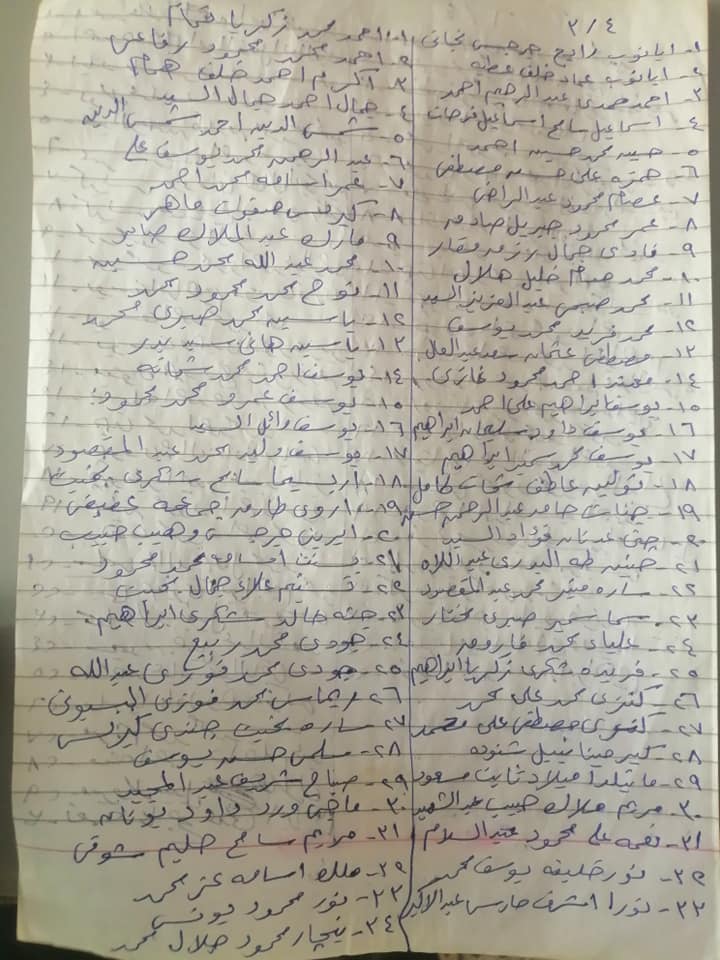 ٣/٤
١- ابانوب رابح جرجس نجاتى
٢- ابانوب عماد خلف عطيه
٣- احمد حمدى عبد الرحيم احمد
٤- اسماعيل سامح اسماعيل فرحات
٥- حسين محمد حسين احمد
٦- حمزه على حسن مصطفى
٧- عصام محمود عبد الراضى
٨- عمر محمود جبريل صادق
٩- فادى جمال
١٠- محمد عصام خليل هلال
١١- محمد عبد العزيز السيد
١٢- محمد فريد محمد يوسف
١٣- مصطفى عثمان سعد عبد العال
١٤- معتز احمد محمود غازى
١٥- يوسف ابراهيم على احمد
١٦- يوسف داود سليمان ابراهيم
١٧- يوسف محمد سمير ابراهيم
١٨- عاطف شحات كامل
١٩- جنات حامد عبد الرحمن حسن
٢٠- جنى عدنان فؤاد السيد
٢١- حنين طه البدرى عبد اللاه
٢٢- ساره منير محمد عبد المقصود
٢٣- سما سمير صبرى مختار
٢٤- علياء محمد فاروق
٢٥- فريده شكرى زكريا ابراهيم
٢٦- كنزى محمد على محمد
٢٧- كنزى مصطفى على محمد
٢٨- مينا نبيل شنوده
٢٩- ماتيلدا ميلاد ثابت مسعود
٣٠- مريم ملاك حبيب عبد الشهيد
٣١- نغمه على محمود عبد السلام
٣٢- نور خليفه يوسف محمد
٣٣- نورا اشرف حارس عبد
١- احمد محمد زكريا همام
٢- احمد محمد محمود رفاعى
٣- اكرم احمد خلف همام
٤- جمال احمد جمال السيد
٥- شمس الدين احمد شمس الدين
٦- عبد الرحمن محمد يوسف على
٧- عمر اسامه محمد احمد
٨- كيرلس صفوت ماهر
٩- مارك عبد الملاك صابر
١٠- محمد عبد الله محمد حسين
١١- نوح محمد محمود محمد
١٢- ياسين محمد صبرى محمد
١٣- ياسين هانى سيد بدر
١٤- يوسف احمد محمد شحاته
١٥- يوسف عمرو محمد محمود
١٦- يوسف وائل السيد
١٧- يوسف وليد محمد عبد المقصود
١٨- اربسيما سامح شكرى بخيت
١٩- اروى طارق جمعه عفيفى
٢٠- ايرين جرجس وهيب حبيب
٢١- اسامه محمد محمود
٢٢- تسنيم علاء جمال بخيت
٢٣- جنه خالد شكرى ابراهيم
٢٤- جودى محمد ربيع
٢٥- جودى محمد فوزى عبد الله
٢٦- ريماس محمد فوزى البسيونى
٢٧- ساره بخيت جندى كيرلس
٢٨- سلمى حسن يوسف
٢٩- صباح شريف عبد المجيد
٣٠- ماجى ورد داود يونان
٣١- مريم سامح حليم شوقى
٣٢- ملك اسامه عز محمد
٣٣- نور محمود يونس
٣٤- محمود جلال محمد